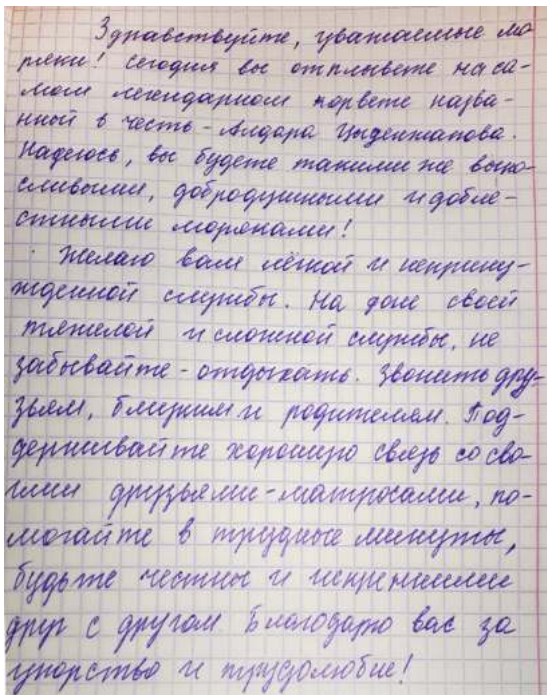 Здравствуйте, уважаемые мо-
ряки! Сегодня вы отплывете на са-
мом легендарном корвете назва-
нной в честь - Алдара Цыденжапова.
Надеюсь, вы будете такими же вын-
осливыми, добродушными и добле-
стными моряками!
Желаю вам лёгкой и неприну-
жденной службы. На фоне своей
тяжелой и сложной службы, не
забывайте - отдыхать. Звонить дру-
зьям, близким и родителям. Под-
держивайте хорошую связь со сво-
ими друзьями-матросами, по-
могайте в трудные минуты,
будьте честны и искренними
друг с другом Благодарю вас за
упорство и трудолюбие!